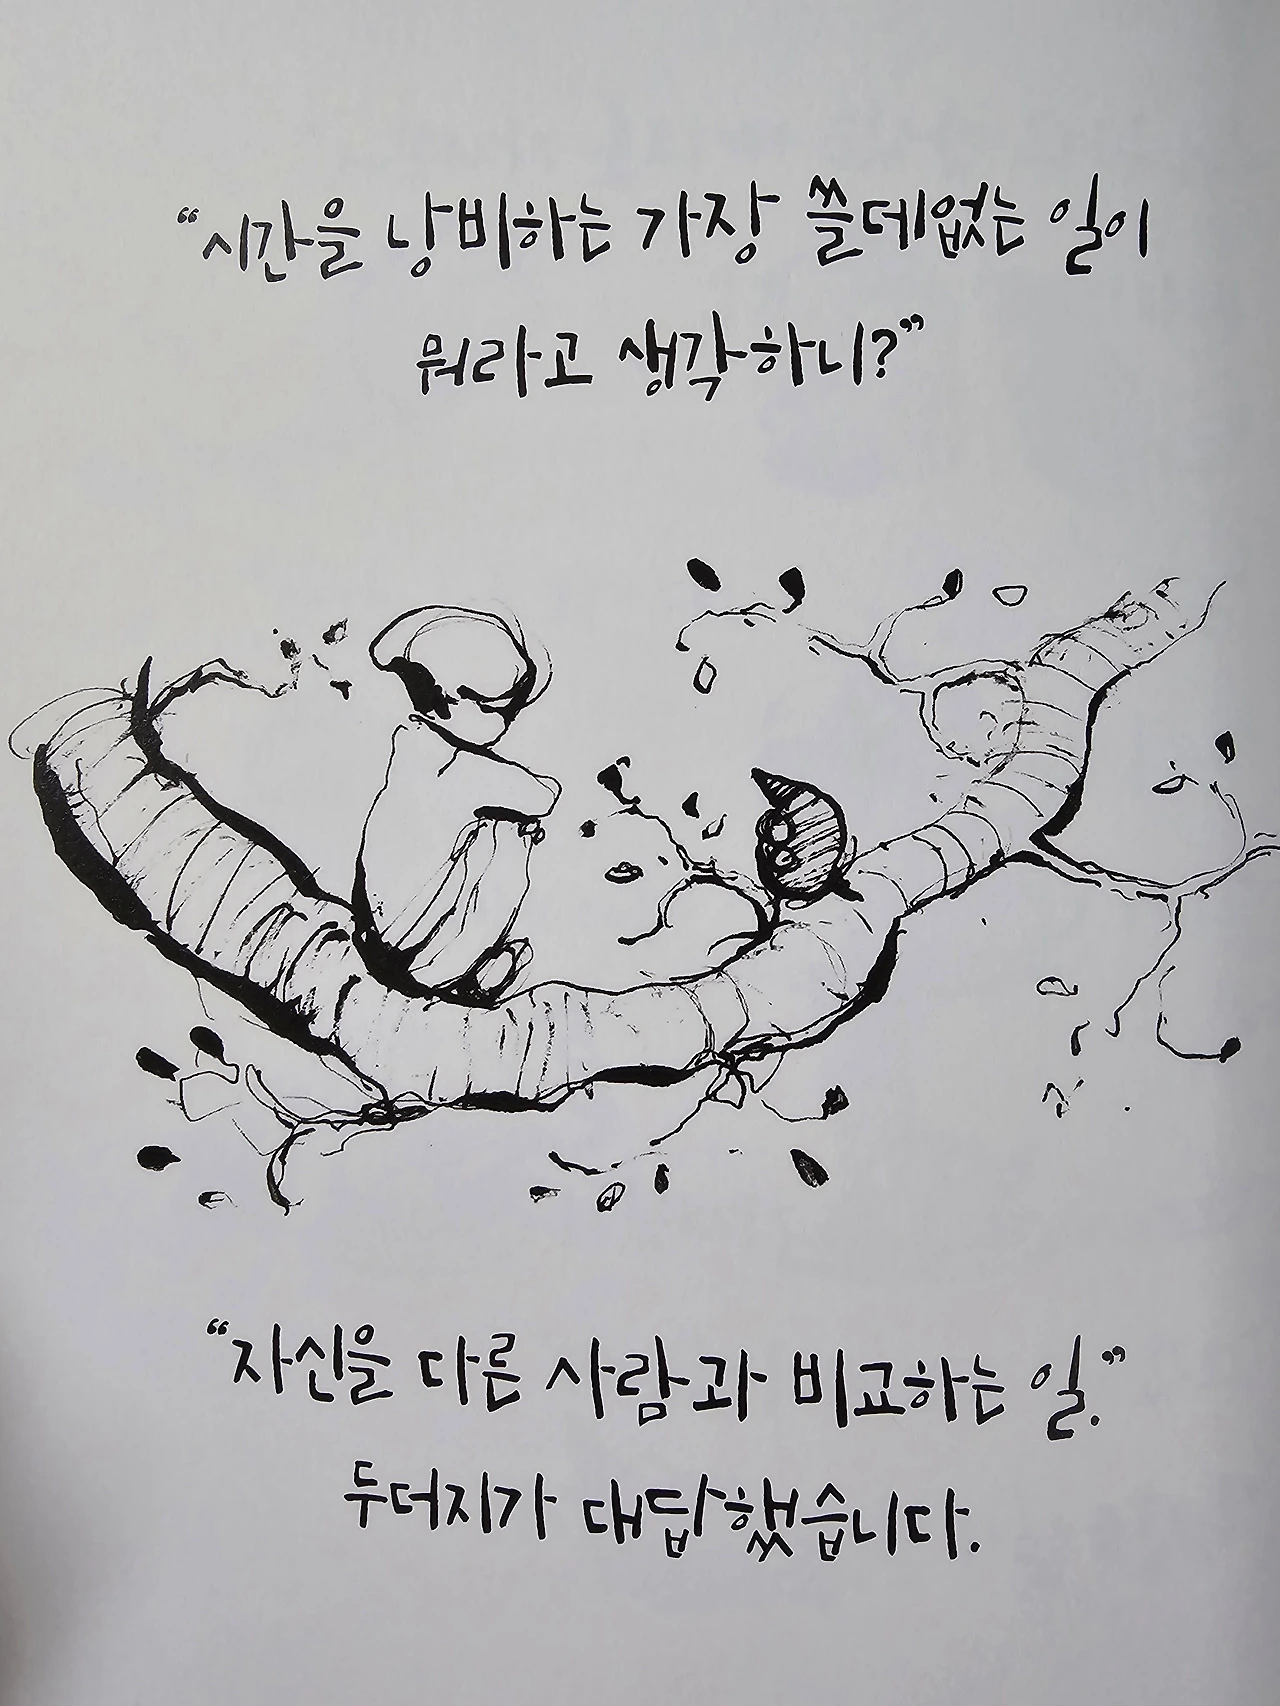 “시간을 낭비하는 가장 쓸데없는 일이
뭐라고 생각하니?”
“자신을 다른 사람과 비교하는 일.”
두더지가 대답했습니다.